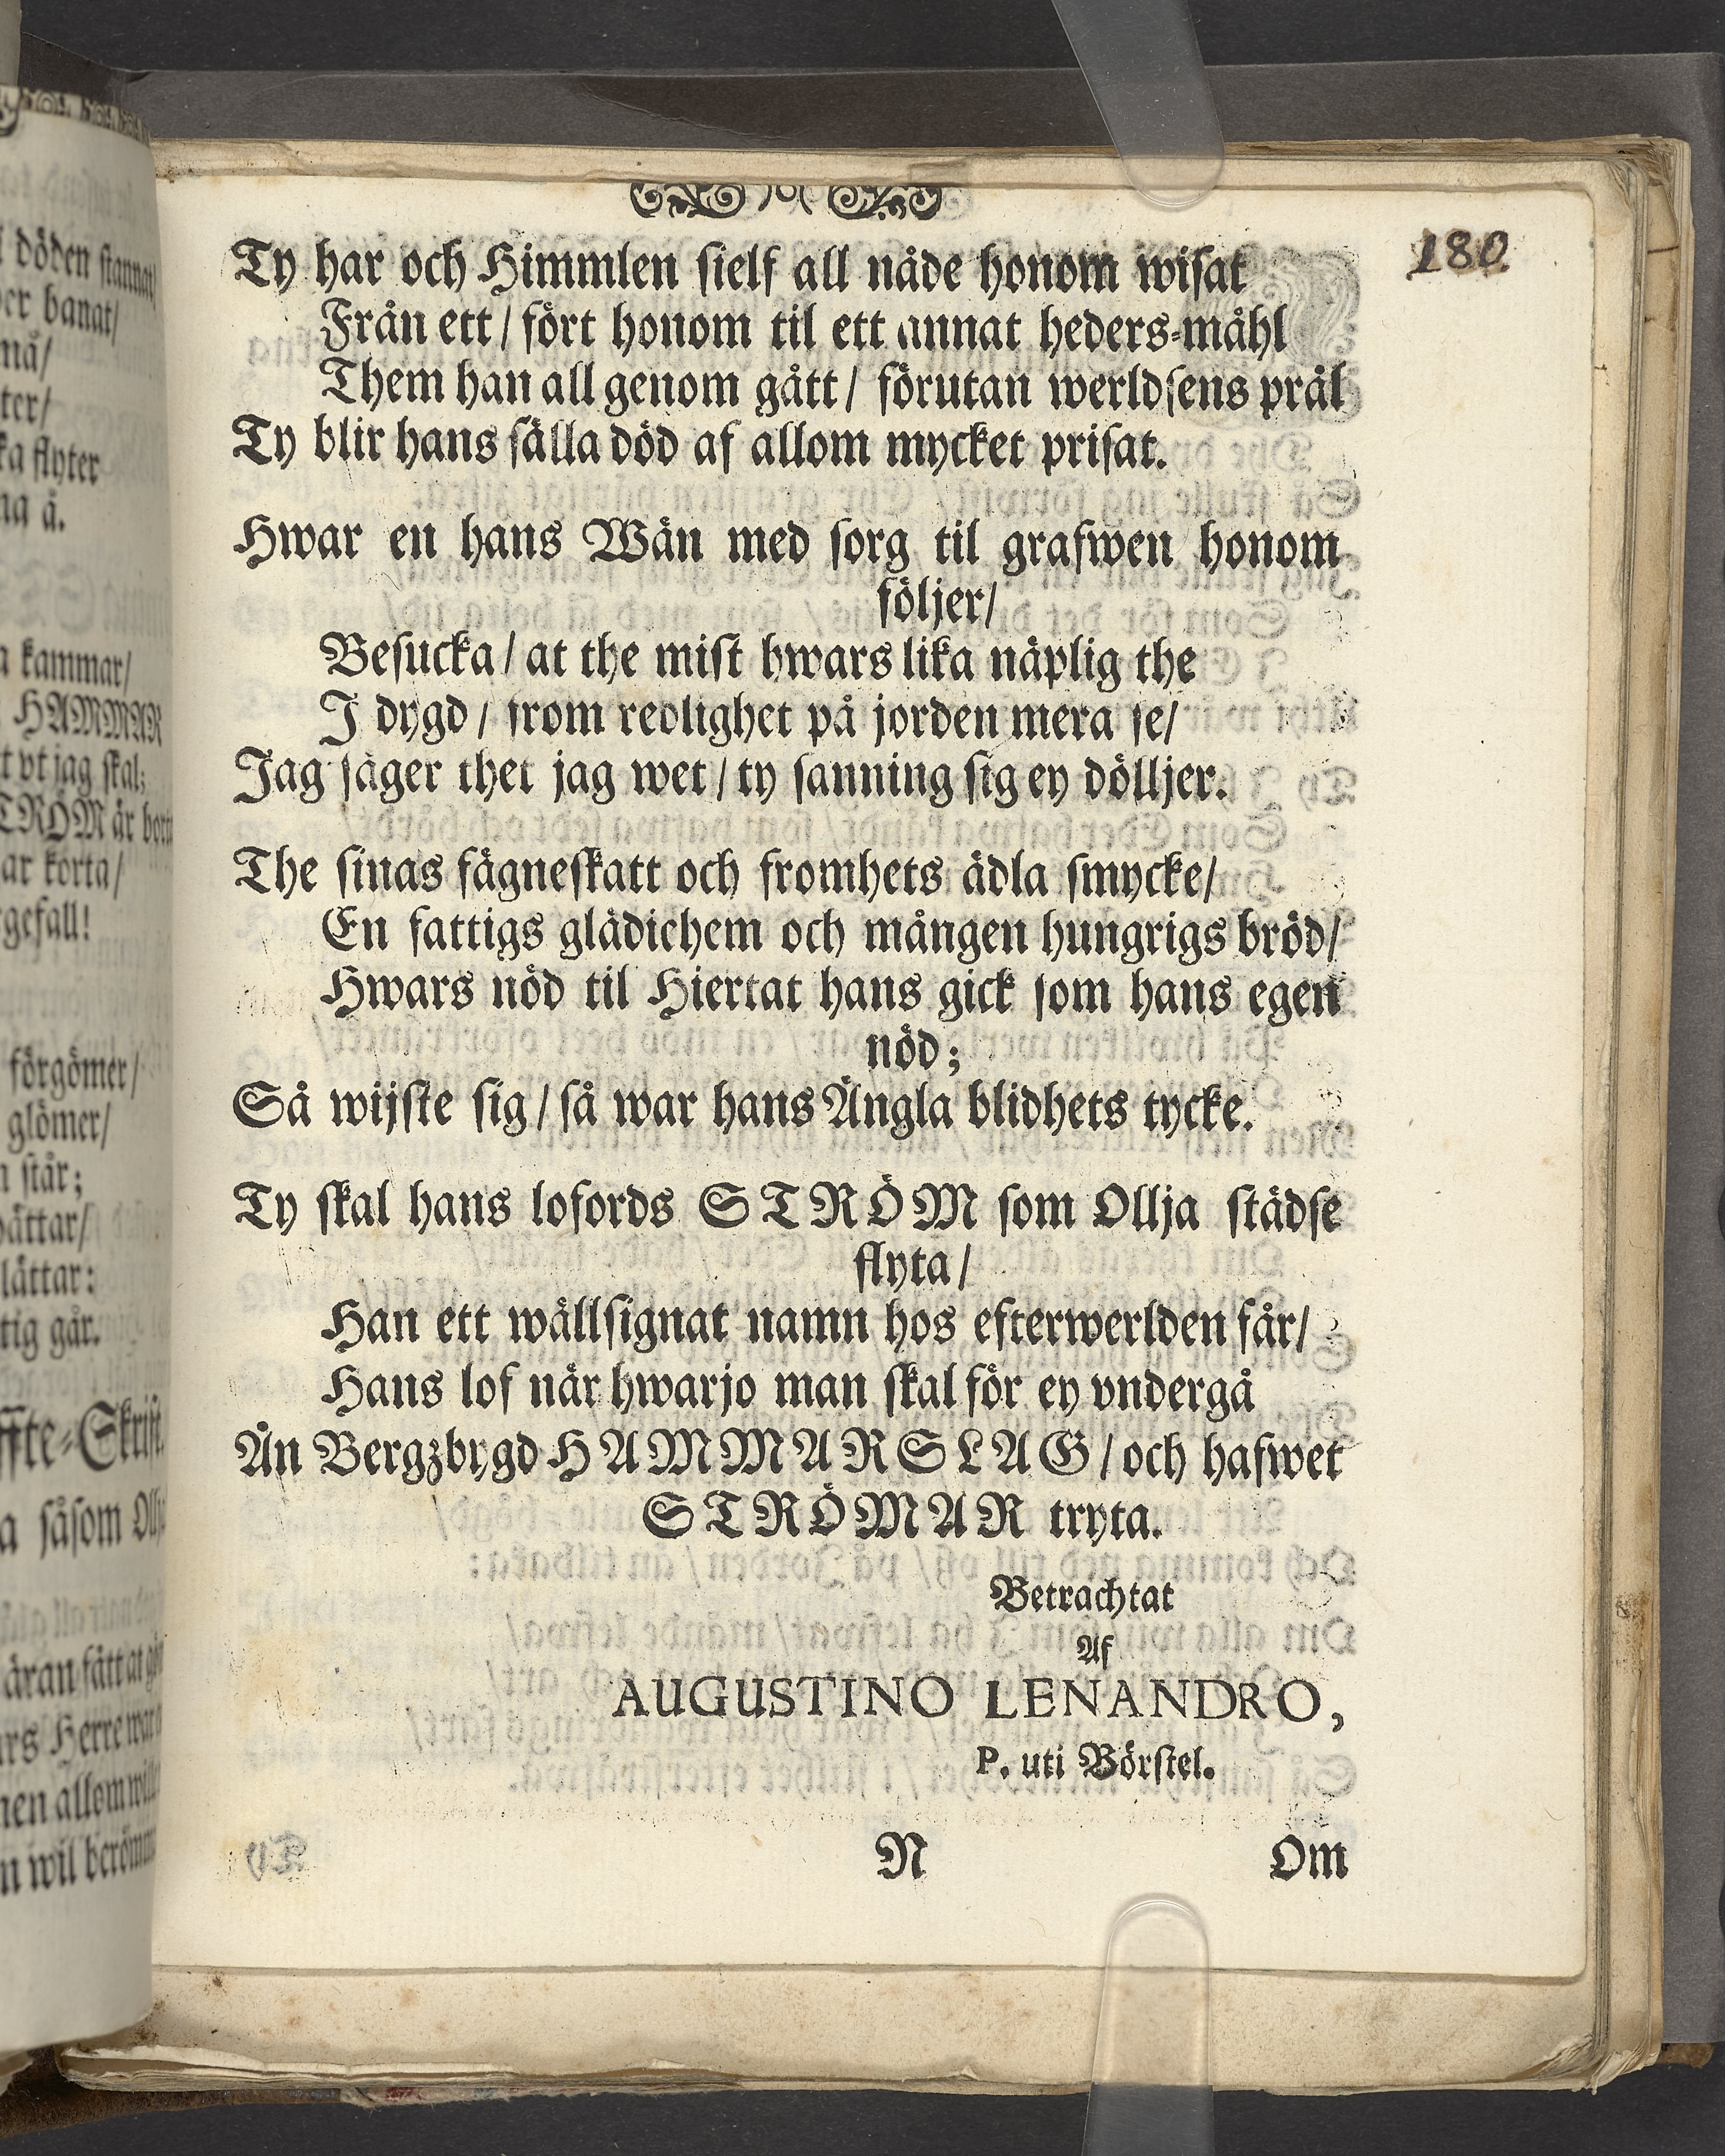 180
Ty har och Himmlen sielf all nåde honom wisat
Från ett / fört honom til ett annat heders-måhl
Them han all genom gått / förutan werldsens prål
Ty blir hans sälla död af allom mycket prisat.
Hwar en hans Wän med sorg til grafwen honom
följer /
Besucka / at the mist hwars lika näplig the
I dygd / from redlighet på jorden mera se /
Jag säger thet jag wet / ty sanning sig ey dölljer.
The sinas fägneskatt och fromhets ädla smycke /
En fattigs glädichem och mången hungrigs bröd /
Hwars nöd til Hiertat hans gick som hans egen
nöd;
Så wijste sig / så war hans Ängla blidhets tycke.
Ty skal hans lofords STRÖM som Ollja städse
flyta /
Han ett wällsignat namn hos efterwerlden får /
Hans lof när hwarjo man skal för ey vndergå
Än Bergzbygd HAMMARSLAG / och hafwet
STRÖMAR tryta.
Betrachtat
Af
AUGUSTINO LENANDRO,
P. uti Börstel.
N Om
döden stannat
banat /
kammar /
HAMMAR
vt jag skal;
STRÖM är
korta /
förgömer /
glömer /
står;
lättar:
går.
såsom
äran fått at
Herre war
allom
wil